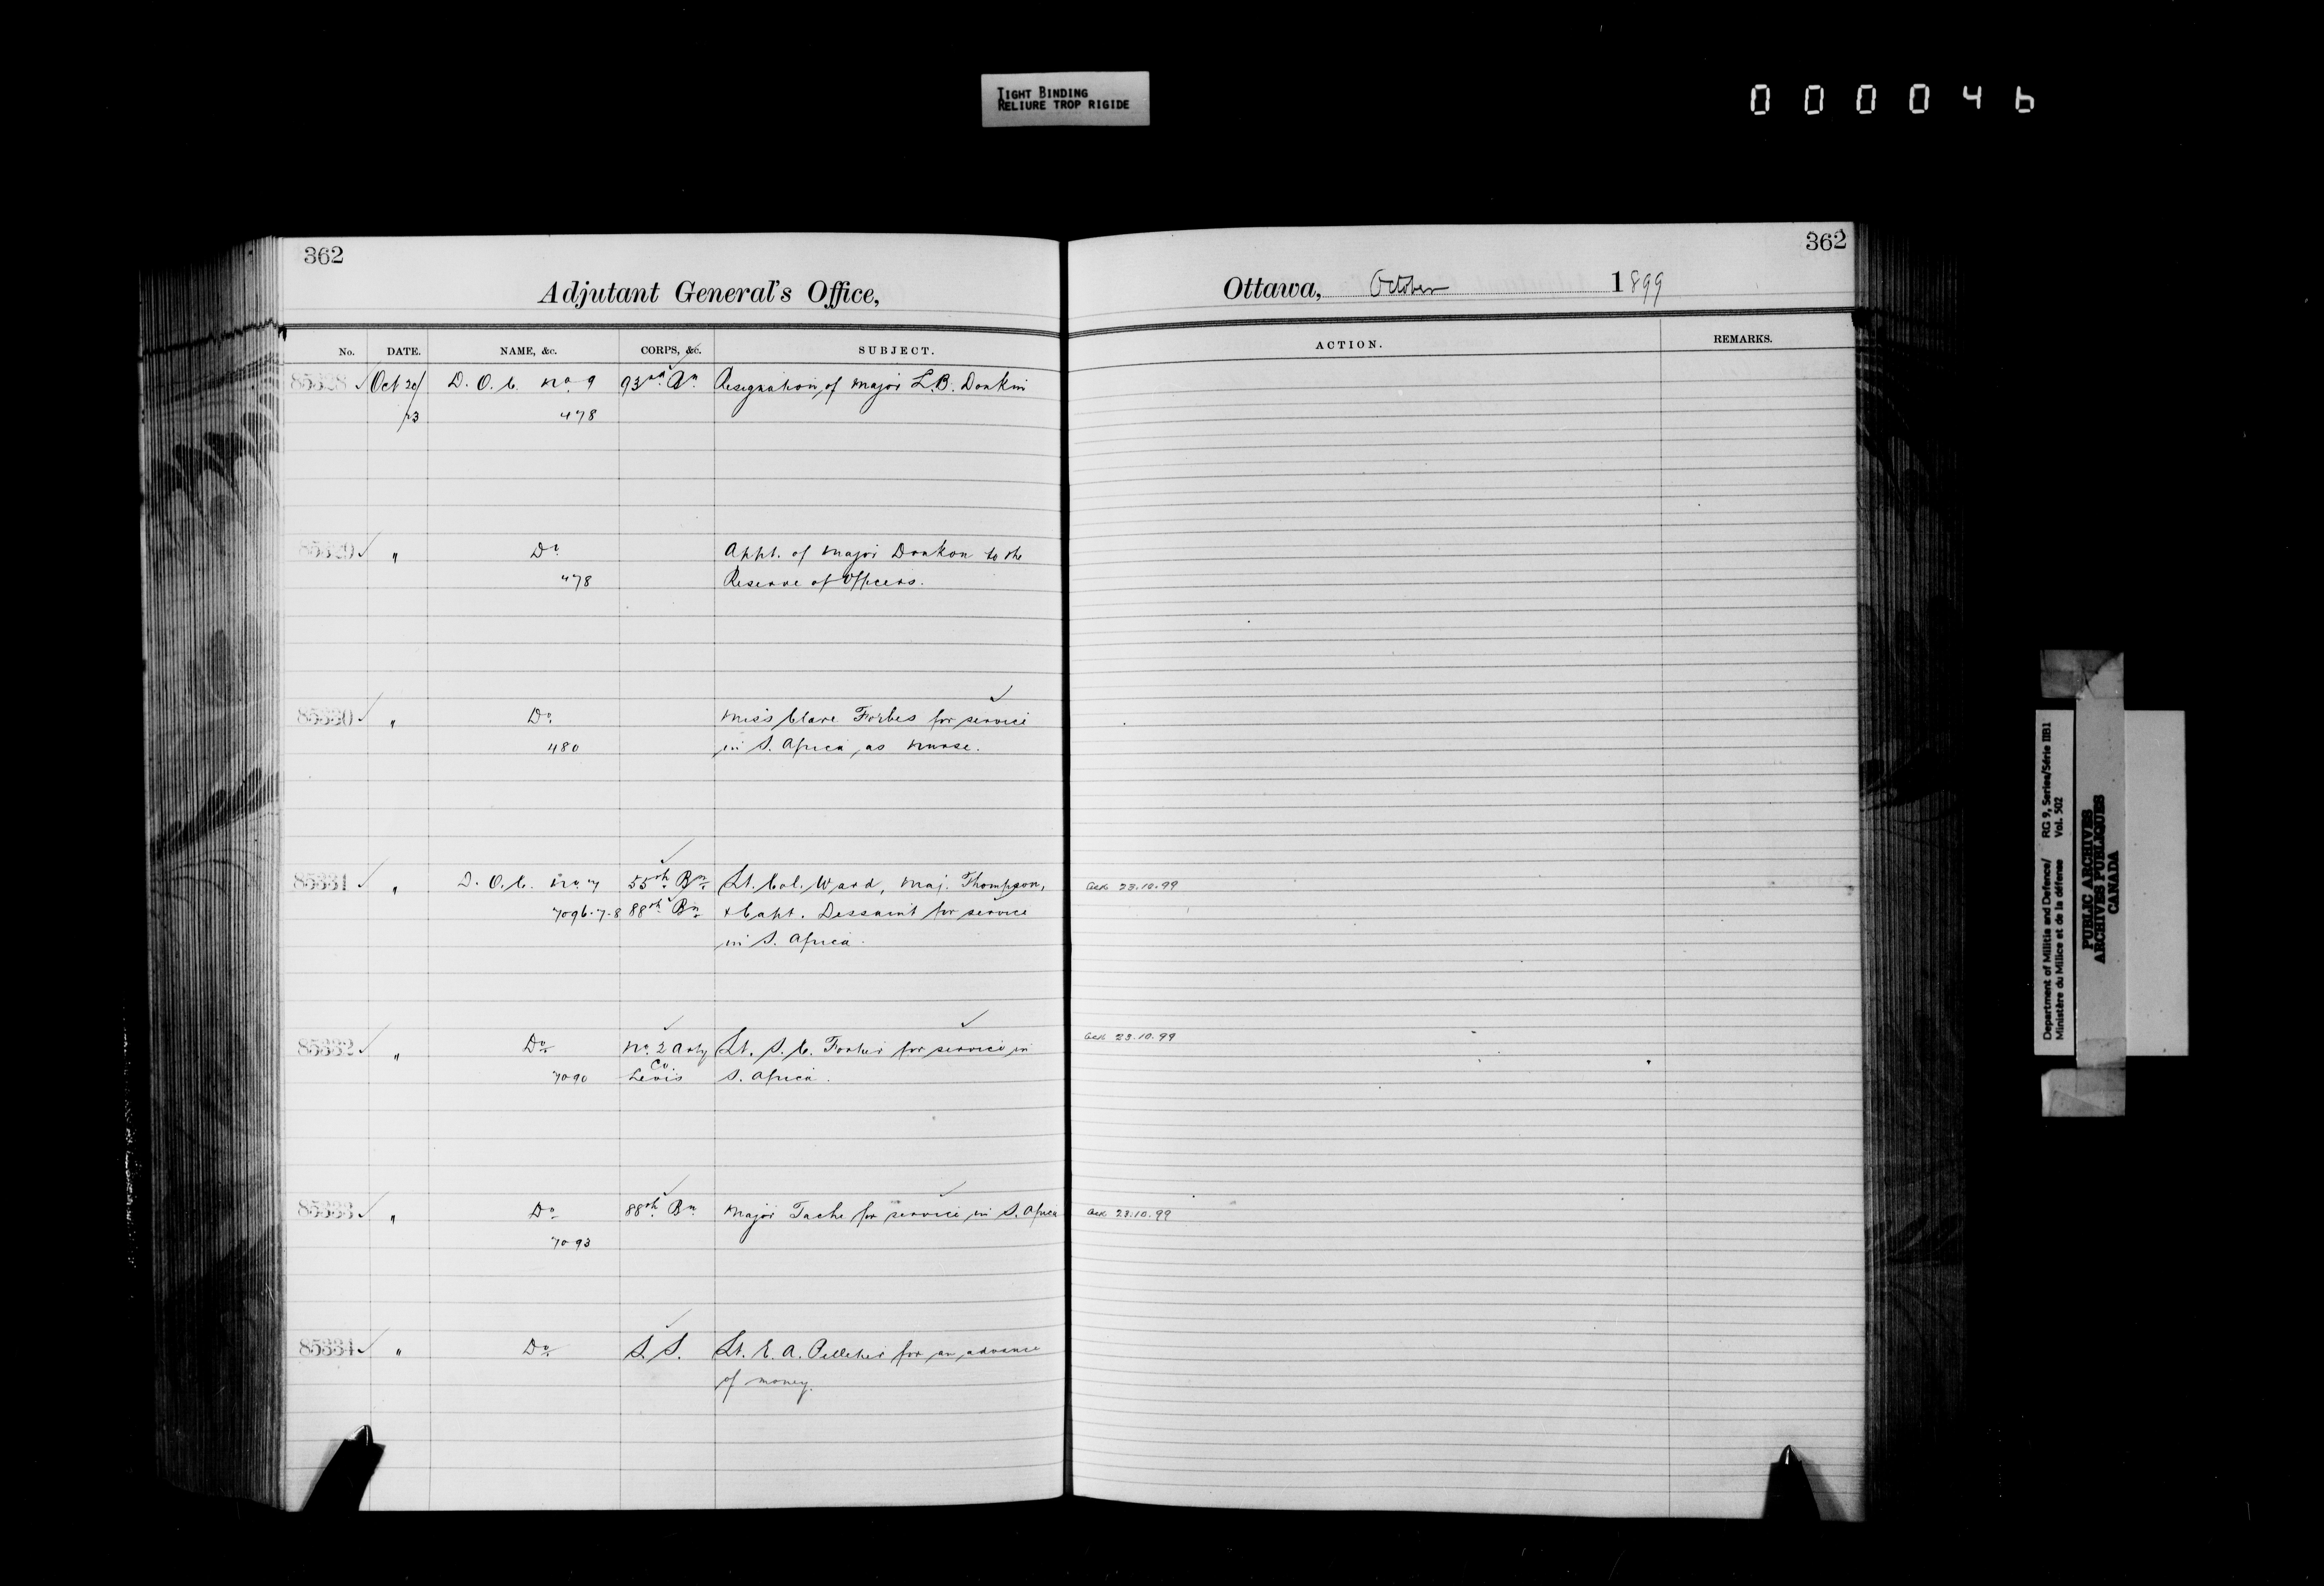 TIGHT BINDING
RELIURE TROP RIGIDE
000046
362
Adjutant General's Office,
No. DATE. NAME, &c. CORPS, &c. SUBJECT.
85328 Oct 20/ D. O. C. No. 9 93rd Bn. Resignation of Major L. B. Donkin
/23 478
85329 " Do. Appt. of Major Donkon to the
478 Reserve of Officers.
85330 " Do. Miss Clare Forbes for service
480 in S. Africa, as nurse.
85331 " D. O. C. No. 7 55th Bn. Lt. Col. Ward, Maj. Thompson,
7096-7-8 88th Bn. & Capt. Dessaint for service
in S. Africa.
85332 " Do. No. 2 Arty Lt. S. C. Fortier for service in
Co.
7090 Levis S. Africa.
85333 " Do. 88th Bn. Major Tache for service in S. Africa
7093
85334 " Do. S. S. Lt. E. A. Pelletier for an advance
of money.
362
Ottawa, October 1899
ACTION. REMARKS.
Ack 23.10.99
Ack 23.10.99
Ack 23.10.99
Department of Militia and Defence/ RG 9, Series/Série IIB1
Ministère du Milice et de la défense Vol. 502
PUBLIC ARCHIVES
ARCHIVES PUBLIQUES
CANADA